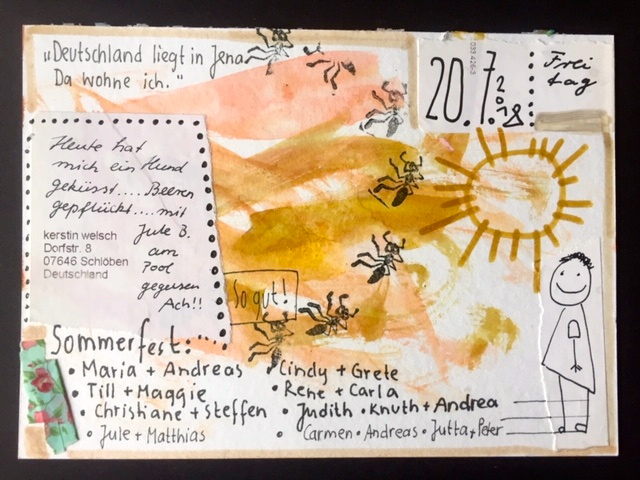 „Deutschland liegt in Jena.
Da wohne ich."
20.7.2018
Frei
tag
Heute hat
mich ein Hund
geküsst.... Beeren
gepflückt.... mit
Jule B.
am
Pool
gegessen
Ach!!
kerstin welsch
Dorfstr. 8
07646 Schlöben
Deutschland
So gut!
Sommerfest:
• Maria + Andreas
• Till + Maggie
• Christiane + Steffen
• Jule + Matthias
• Cindy + Grete
• Rene + Carla
• Judith • Knuth + Andrea
• Carmen • Andreas • Jutta + Peter